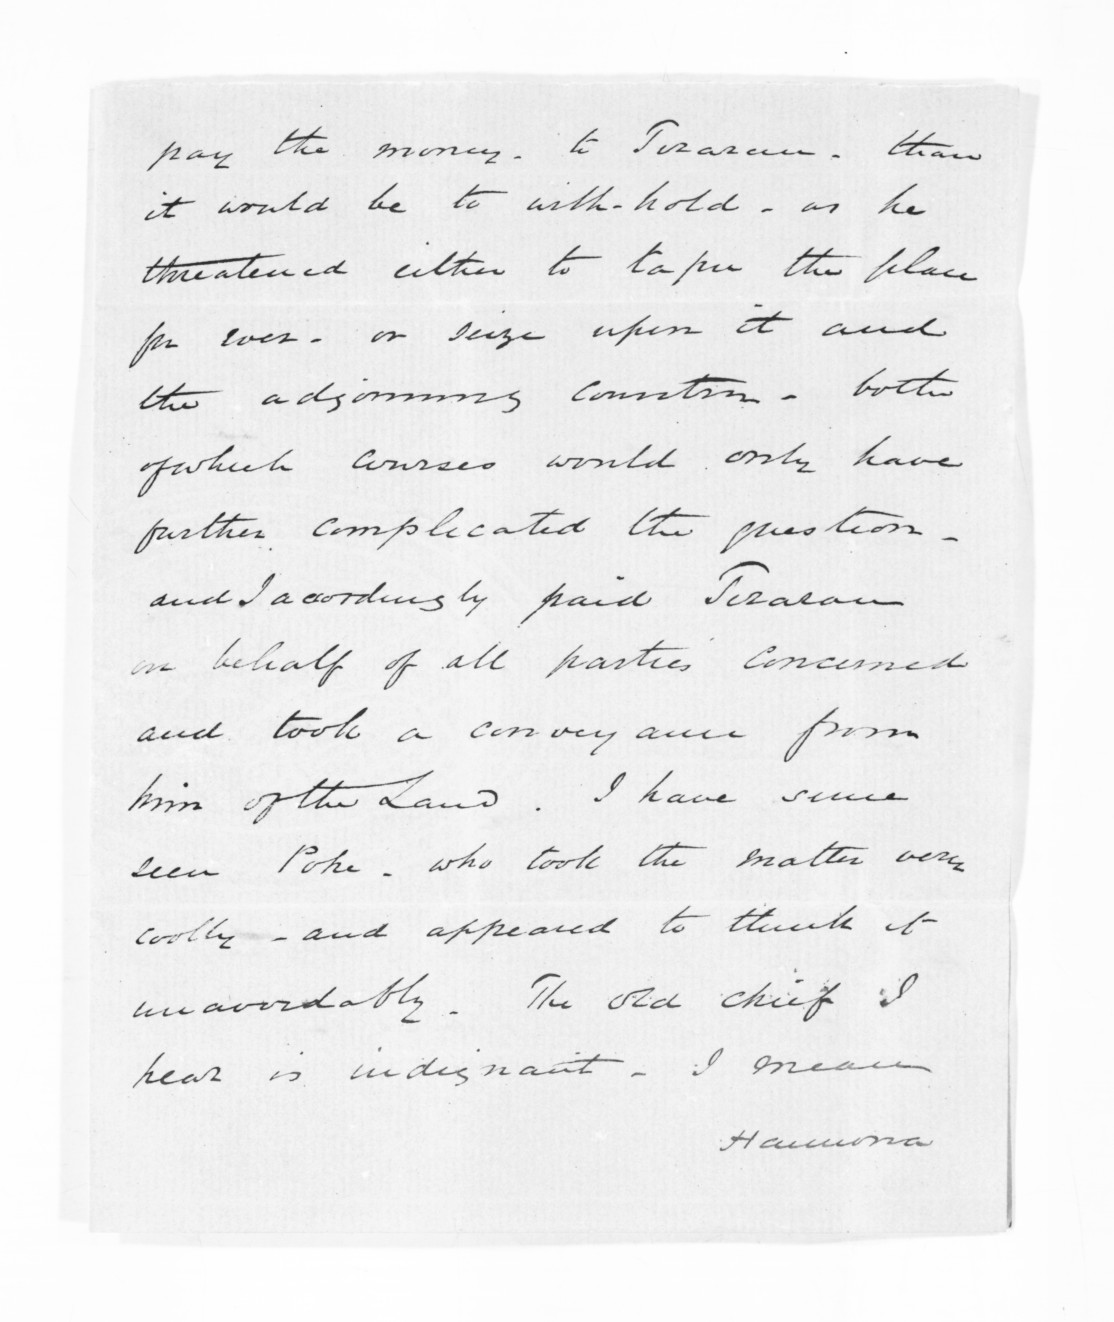 pay the money - to Tirarau - than
it would be to with-hold - as he
threatened either to tapu the place
for ever - or seize upon it and
the adjoining countrin - both
of which courses would only have
further complicated the question -
and I accordingly paid Tirarau
on behalf of all parties concerned
and took a conveyance from
him of the Land . I have since
seen Poke - who took the matter very
coolly - and appeared to think it
unavoidably - The old chief I
hear is indignant - I mean
Haumona